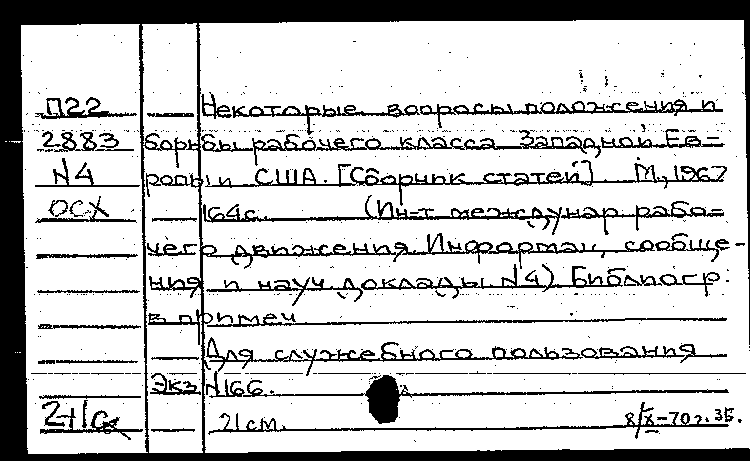 П22 Некоторые вопросы положения и
2883 борьбы рабочего класса Западной Ев=
N4 ропы и США. [Сборник статей] М., 1967
ОСХ 164с. (Ин-т междунар рабо=
чего движения. Информац, сообще-
ния и науч доклады N4) Библиогр.
в примеч
Для служебного пользования
Экз N166.
2+1с 21см. 8/IX-70г. ЗБ.